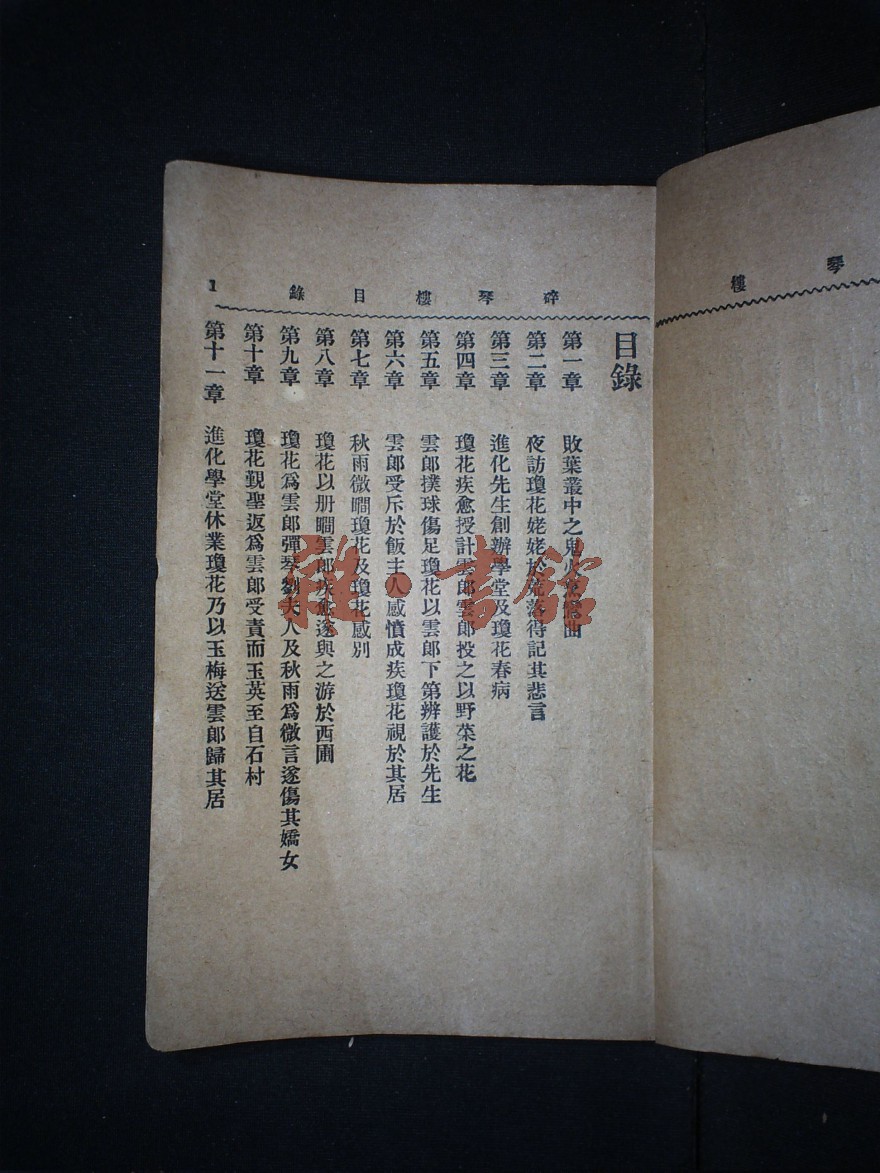 琴樓
碎琴樓目錄 1
目錄
第一章 敗葉叢中之鬼火鴛鴦曲
第二章 夜訪瓊花姥姥於花落得記其悲言
第三章 進化先生創辦學堂及瓊花春病
第四章 瓊花疾愈授計雲郎雲郎投之以野菜之花
第五章 雲郎撲球傷足瓊花以雲郎下第辨護於先生
第六章 雲郎受斥於飯主人感憤成疾瓊花視於其居
第七章 秋雨微瞷瓊花及瓊花感別
第八章 瓊花以册瞷雲郎疾愈遂與之游於西圃
第九章 瓊花爲雲郎彈琴劉夫人及秋雨爲微言遂傷其嬌女
第十章 瓊花覲聖返爲雲郎受責而玉英至自石村
第十一章 進化學堂休業瓊花乃以玉梅送雲郎歸其居
雜·書館